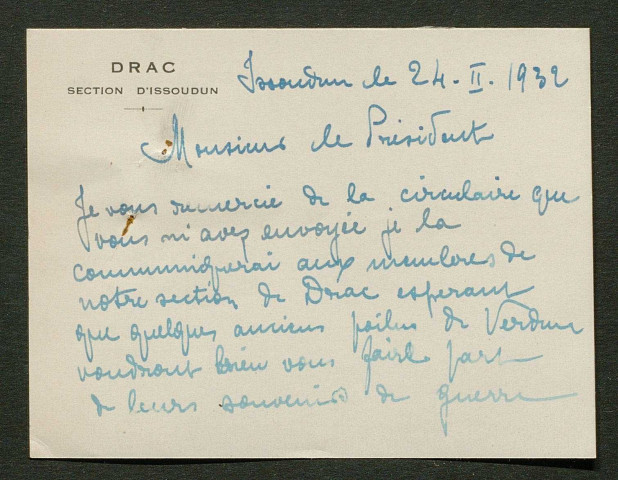 DRAC
SECTION D'ISSOUDUN
Issoudun le 24 - II. 1932
Monsieur le Président
Je vous remercie de la circulaire que
vous m'avez envoyée je la
communiquerai aux membres de
notre section de Drac esperant
que quelques anciens poilus de Verdun
voudront bien vous faire part
de leurs souvenirs de guerre